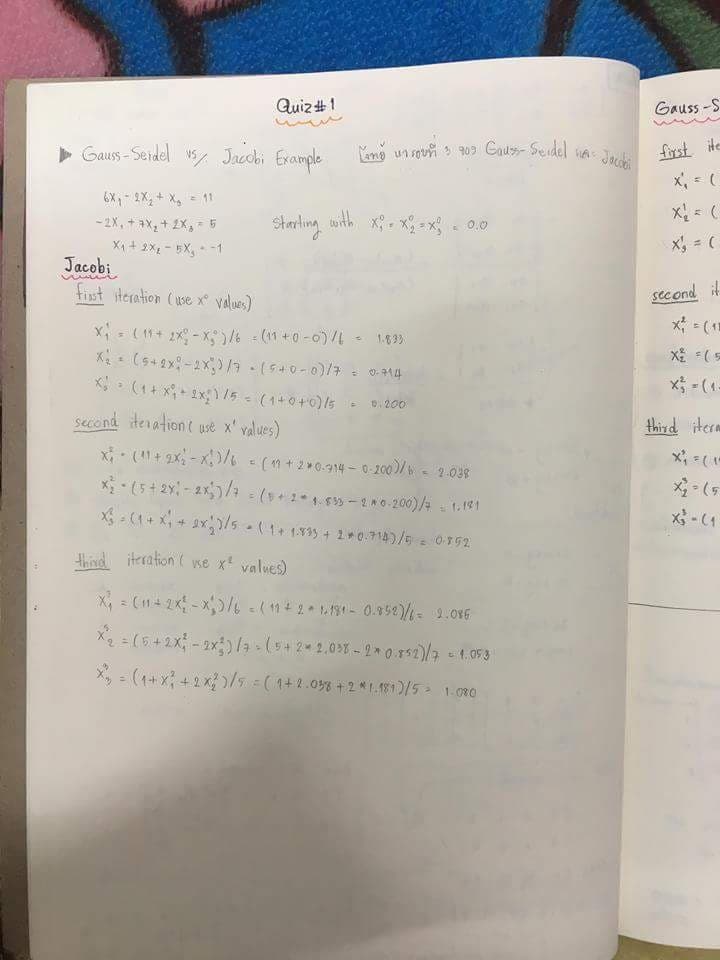 Quiz#1
▶ Gauss-Seidel vs/ Jacobi Example หารอบที่ 3 ของ Gauss-Seidel และ Jacobi
6x₁ - 2x₂ + x₃ = 11
-2x₁ + 7x₂ + 2x₃ = 5 Starting with x₁⁰ = x₂⁰ = x₃⁰ = 0.0
x₁ + 2x₂ - 5x₃ = -1
Jacobi
first iteration (use x⁰ values)
x₁¹ = (11 + 2x₂⁰ - x₃⁰)/6 = (11 + 0 - 0)/6 = 1.833
x₂¹ = (5 + 2x₁⁰ - 2x₃⁰)/7 = (5 + 0 - 0)/7 = 0.714
x₃¹ = (1 + x₁⁰ + 2x₂⁰)/5 = (1 + 0 + 0)/5 = 0.200
second iteration (use x¹ values)
x₁² = (11 + 2x₂¹ - x₃¹)/6 = (11 + 2*0.714 - 0.200)/6 = 2.038
x₂² = (5 + 2x₁¹ - 2x₃¹)/7 = (5 + 2*1.833 - 2*0.200)/7 = 1.181
x₃² = (1 + x₁¹ + 2x₂¹)/5 = (1 + 1.833 + 2*0.714)/5 = 0.852
third iteration (use x² values)
x₁³ = (11 + 2x₂² - x₃²)/6 = (11 + 2*1.181 - 0.852)/6 = 2.085
x₂³ = (5 + 2x₁² - 2x₃²)/7 = (5 + 2*2.038 - 2*0.852)/7 = 1.053
x₃³ = (1 + x₁² + 2x₂²)/5 = (1 + 2.038 + 2*1.181)/5 = 1.080
Gauss-S
first ite
x₁¹ = (
x₂¹ = (
x₃¹ = (
second it
x₁² = (11
x₂² = (5
x₃² = (1
third itera
x₁³ = (11
x₂³ = (5
x₃³ = (1